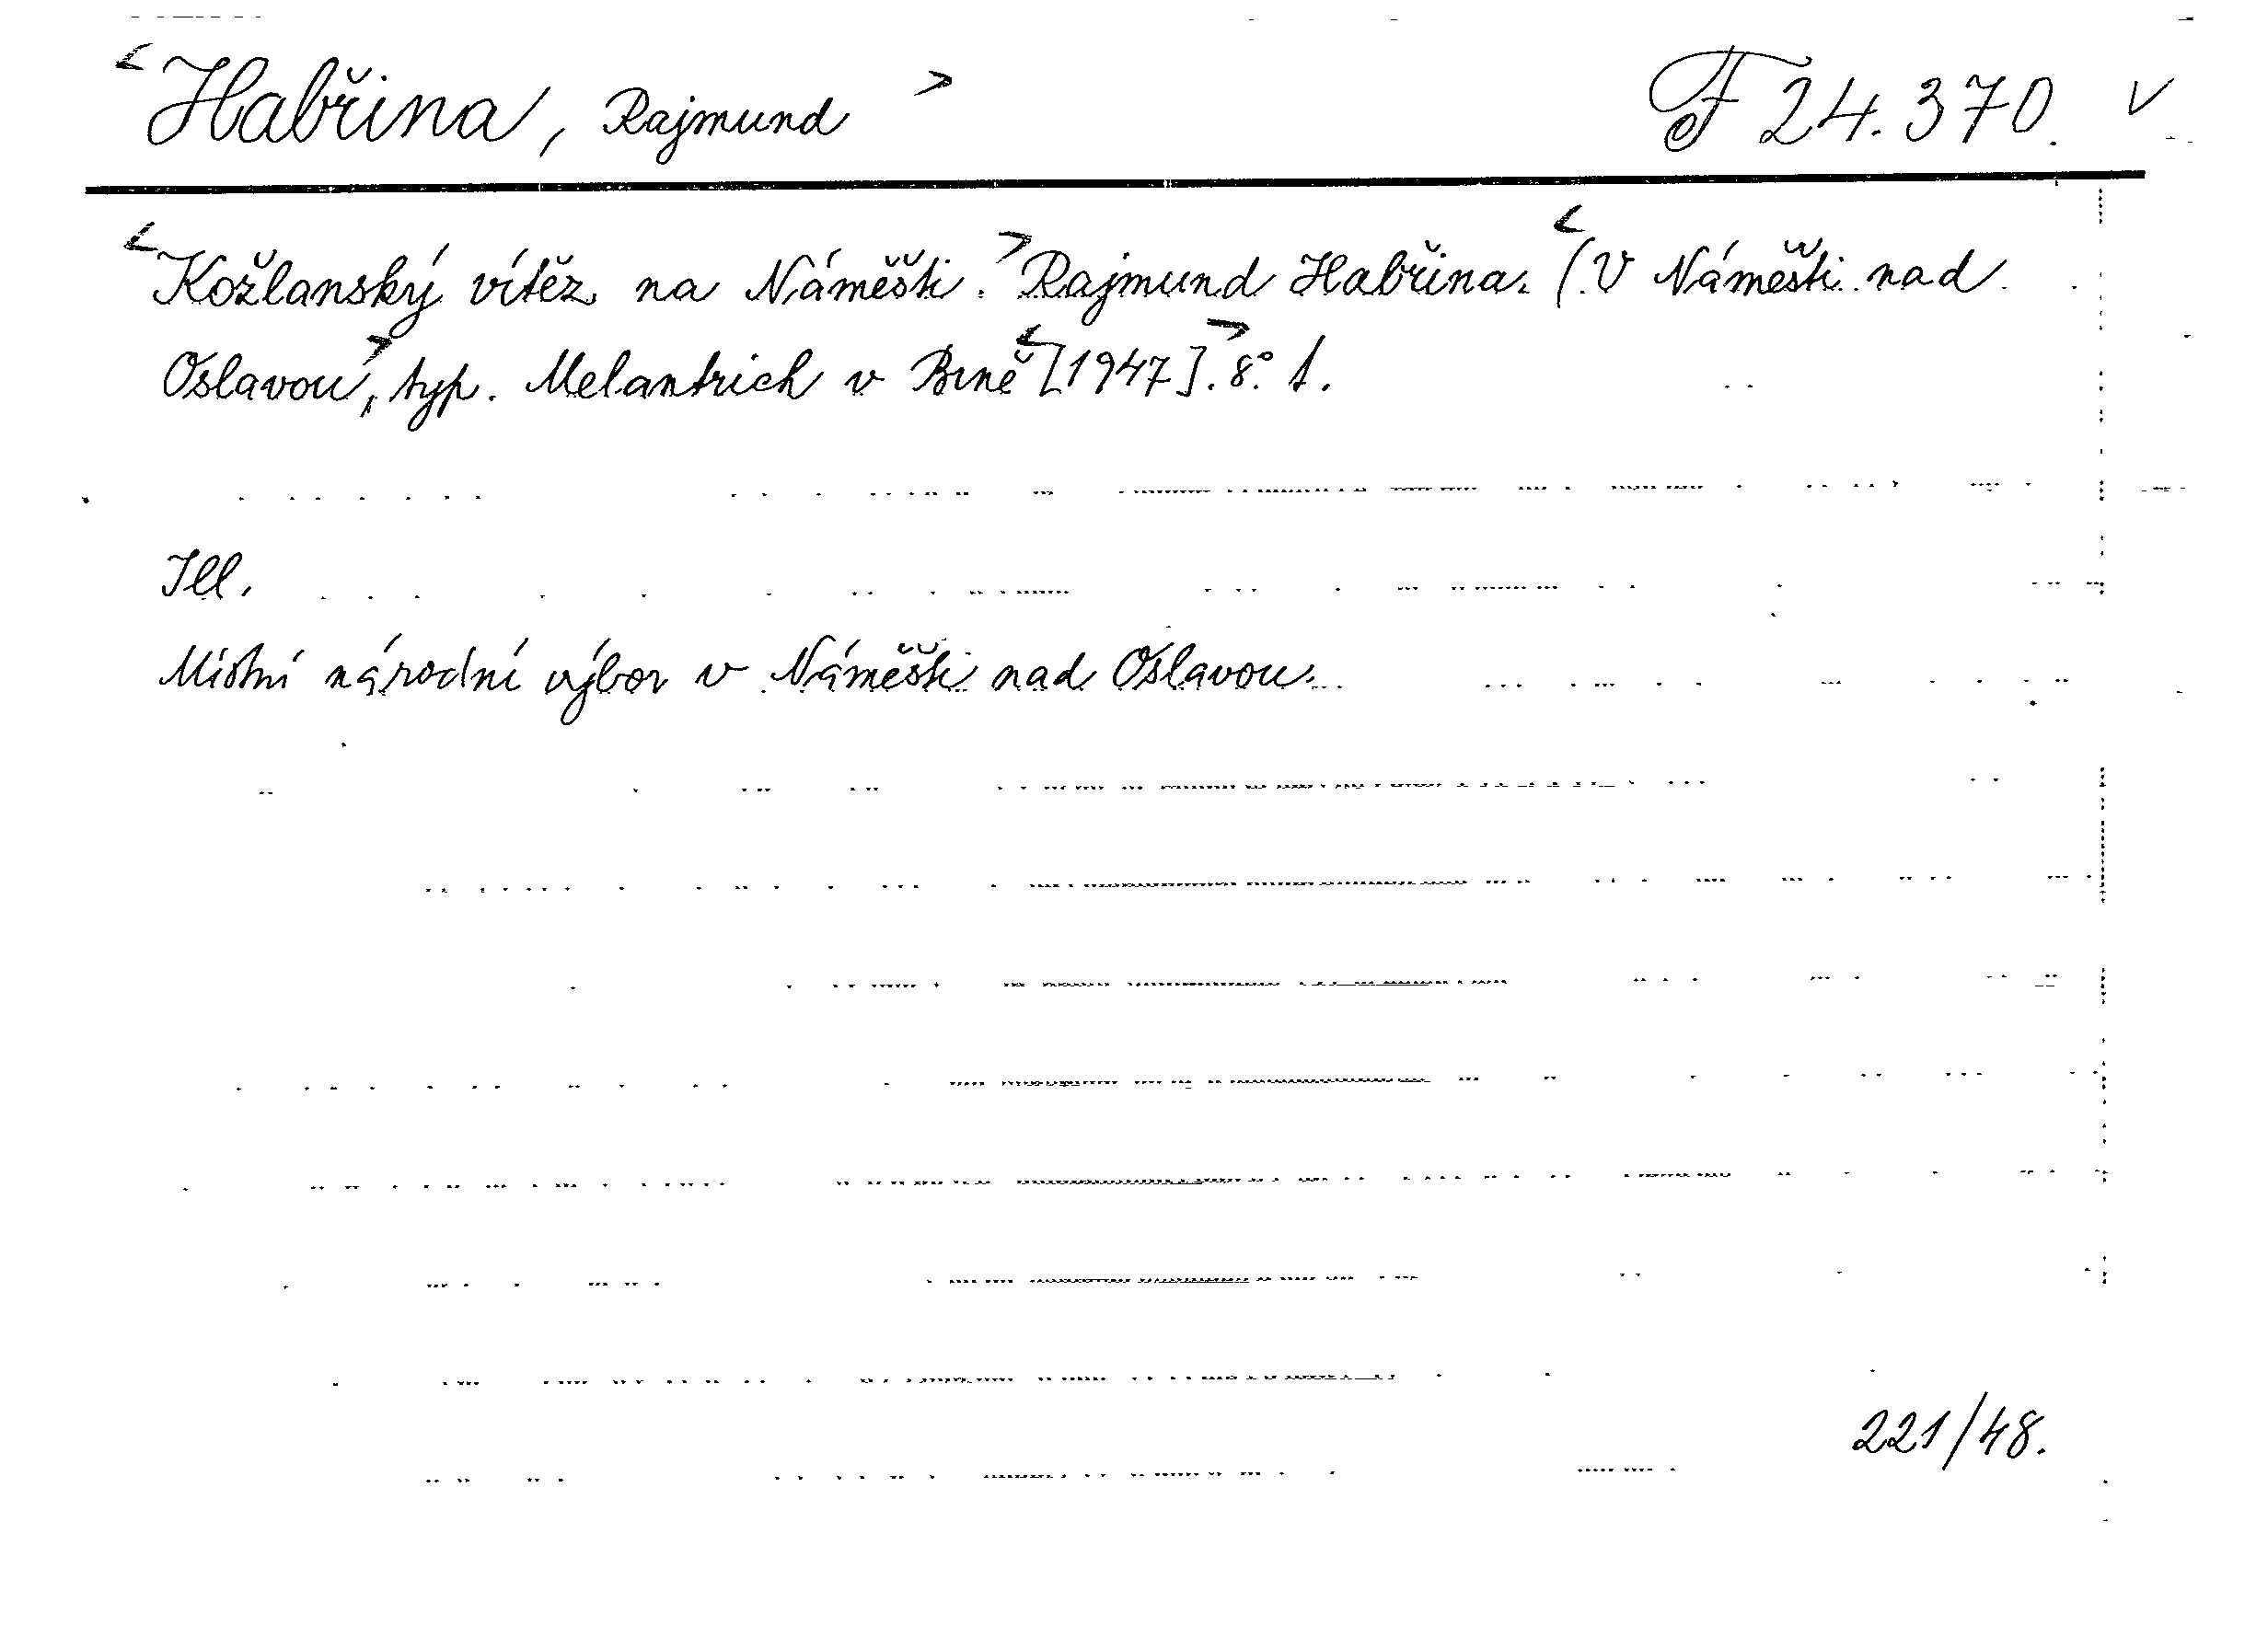 <Habřina, Rajmund> F 24.370. ✓
<Kožlanský vítěz na Náměšti.> Rajmund Habřina. <(V Náměšti nad
Oslavou>, typ. Melantrich v Brně <[1947].> 8.° 1.
Ill.
Místní národní výbor v Náměšti nad Oslavou.
221/48.